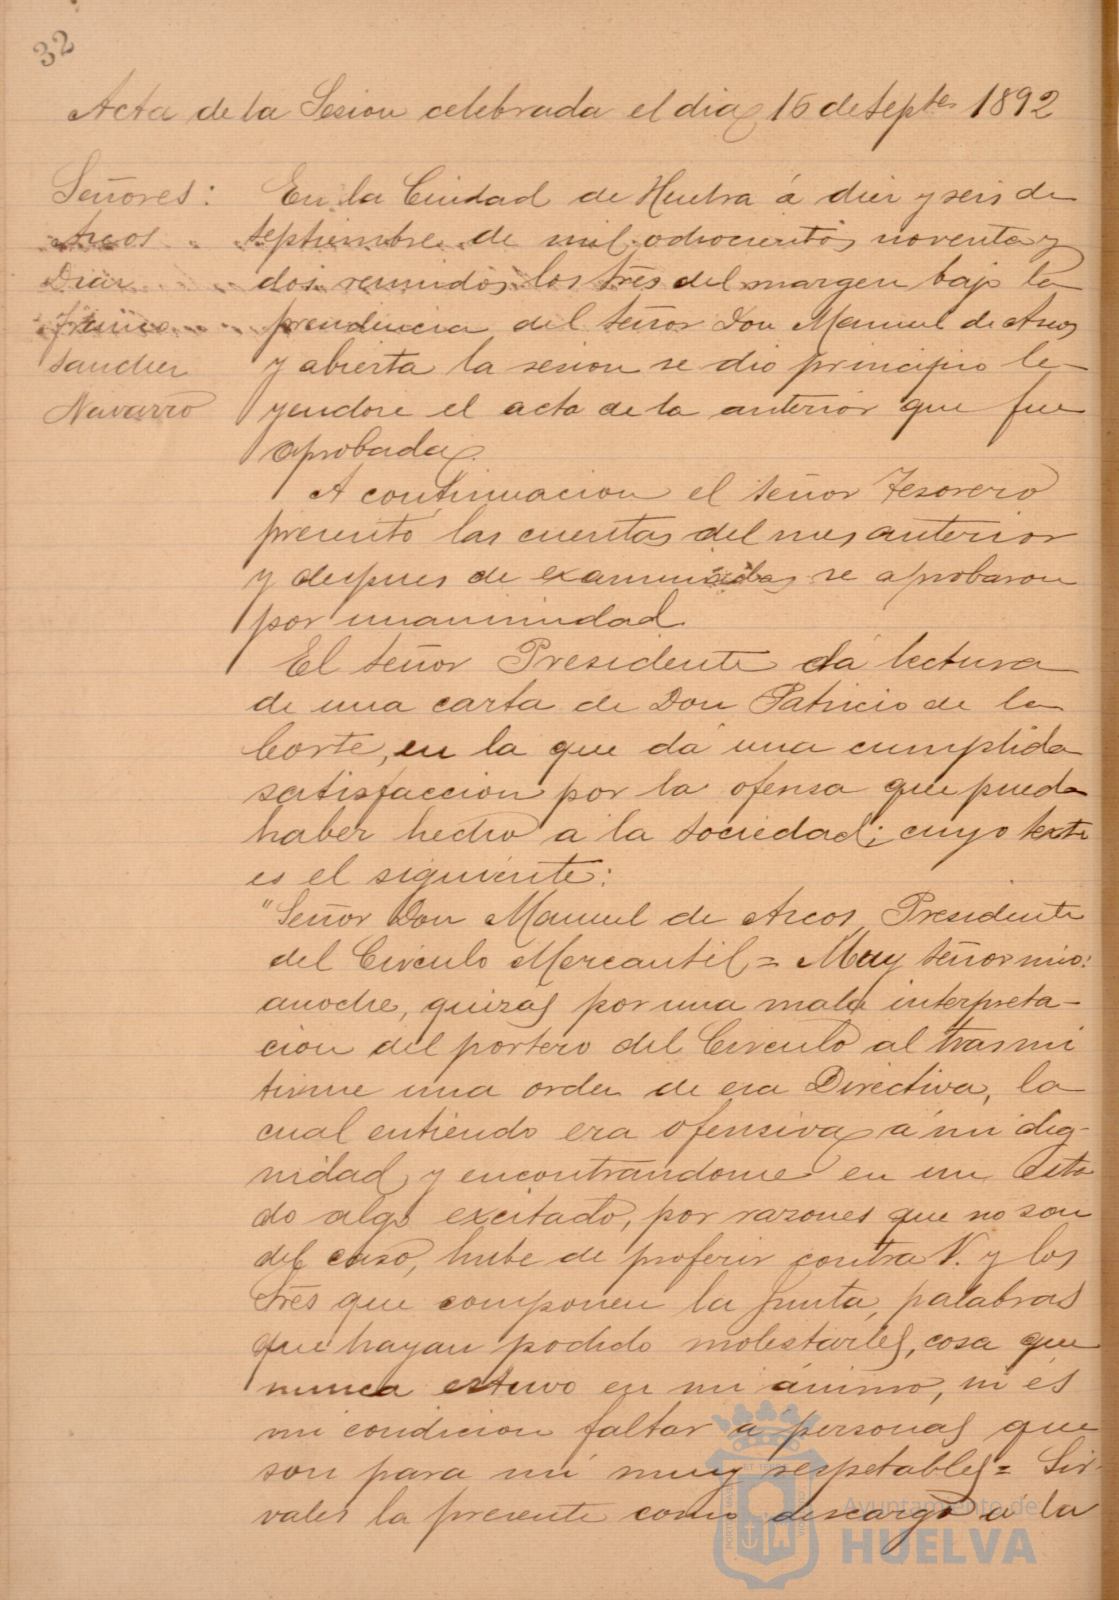 32
Acta de la Sesion celebrada el dia 16 de Septbre 1892
Señores:
Arcos
Diaz
Sanchez
Navarro
En la Ciudad de Huelva á diez y seis de
Septiembre de mil ochocientos noventa y
dos reunidos los Sres del margen bajo la
presidencia del Señor Don Manuel de Arcos
y abierta la sesion se dio principio le-
yendose el acta de la anterior que fue
aprobada.
A continuacion el Señor Tesorero
presentó las cuentas del mes anterior
y despues de examinadas se aprobaron
por unanimidad.
El Señor Presidente dá lectura
de una carta de Don Patricio de la
Corte, en la que dá una cumplida
satisfaccion por la ofensa que pueda
haber hecho a la Sociedad; cuyo texto
es el siguiente:
"Señor Don Manuel de Arcos, Presidente
del Circulo Mercantil = Muy Señor mio:
anoche, quizas por una mala interpreta-
cion del portero del Circulo al trasmi
tirme una orden de esa Directiva, la
cual entiendo era ofensiva á mi dig-
nidad, y encontrandome en un esta
do algo excitado, por razones que no son
del caso, hube de proferir contra V. y los
Sres que componen la Junta, palabras
que hayan podido molestarles, cosa que
nunca estuvo en mi ánimo, ni és
mi condicion faltar á personas que
son para mi muy respetables = Sir-
vales la presente como descargo a la
Ayuntamiento de
HUELVA